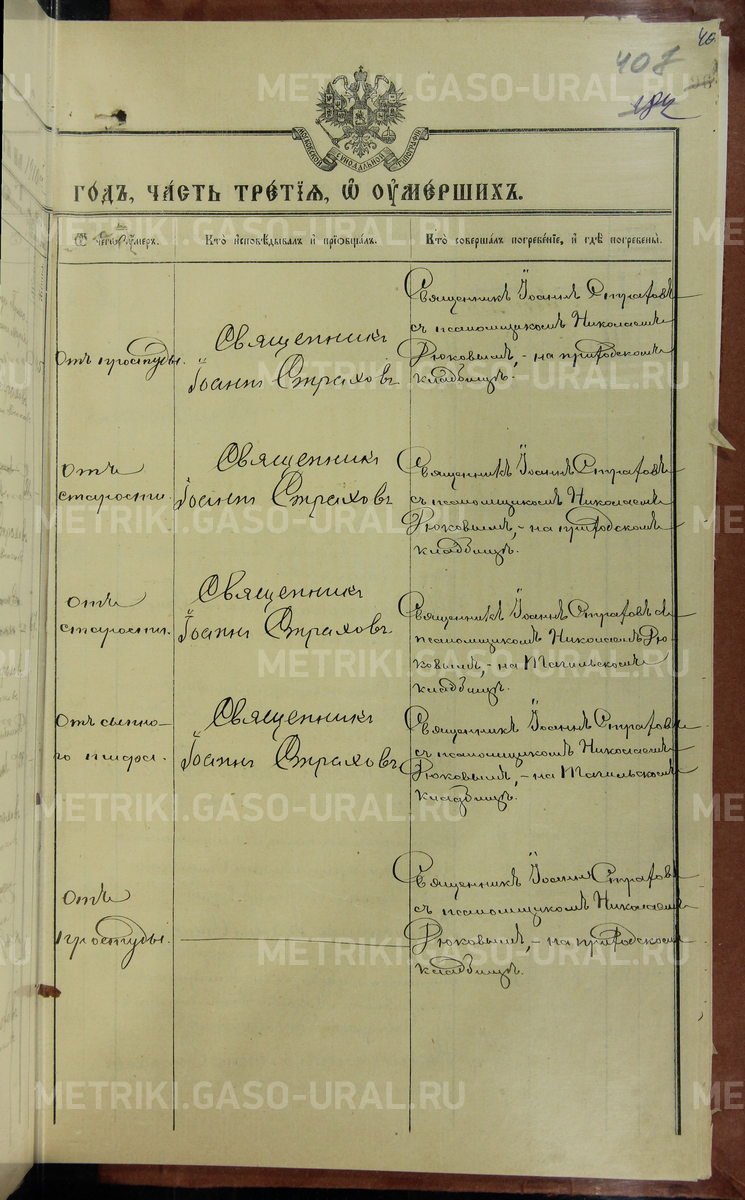 40
408
МОСКОВСКОЙ СѴНОДАЛЬНОЙ ТИПОГРАФІИ
ГО́ДЪ, ЧА́СТЬ ТРЕ́ТІѦ, Ѽ ОУ҆МЕ́РШИХЪ.
Ѿ чегѡ̀ оу҆́меръ.
Кто̀ и҆сповѣ́дывалъ и҆ прїѡбща́лъ.
Кто̀ соверша́лъ погребе́нїе, и҆ гдѣ̀ погребены̀.
Отъ простуды.
Священникъ
Іоаннъ Страховъ
Священникъ Іоаннъ Страховъ
съ псаломщикомъ Николаемъ
Рюковымъ, - на приходскомъ
кладбищѣ.
Отъ
старости.
Священникъ
Іоаннъ Страховъ
Священникъ Іоаннъ Страховъ
съ псаломщикомъ Николаемъ
Рюковымъ, - на приходскомъ
кладбищѣ.
Отъ
старости.
Священникъ
Іоаннъ Страховъ
Священникъ Іоаннъ Страховъ съ
псаломщикомъ Николаемъ Рю-
ковымъ, - на Тагильскомъ
кладбищѣ.
Отъ сыпно-
го тифа.
Священникъ
Іоаннъ Страховъ
Священникъ Іоаннъ Страховъ
съ псаломщикомъ Николаемъ
Рюковымъ, - на Тагильскомъ
кладбищѣ.
Отъ
простуды.
Священникъ Іоаннъ Страховъ
съ псаломщикомъ Николаемъ
Рюковымъ, - на приходскомъ
кладбищѣ.
METRIKI.GASO-URAL.RU